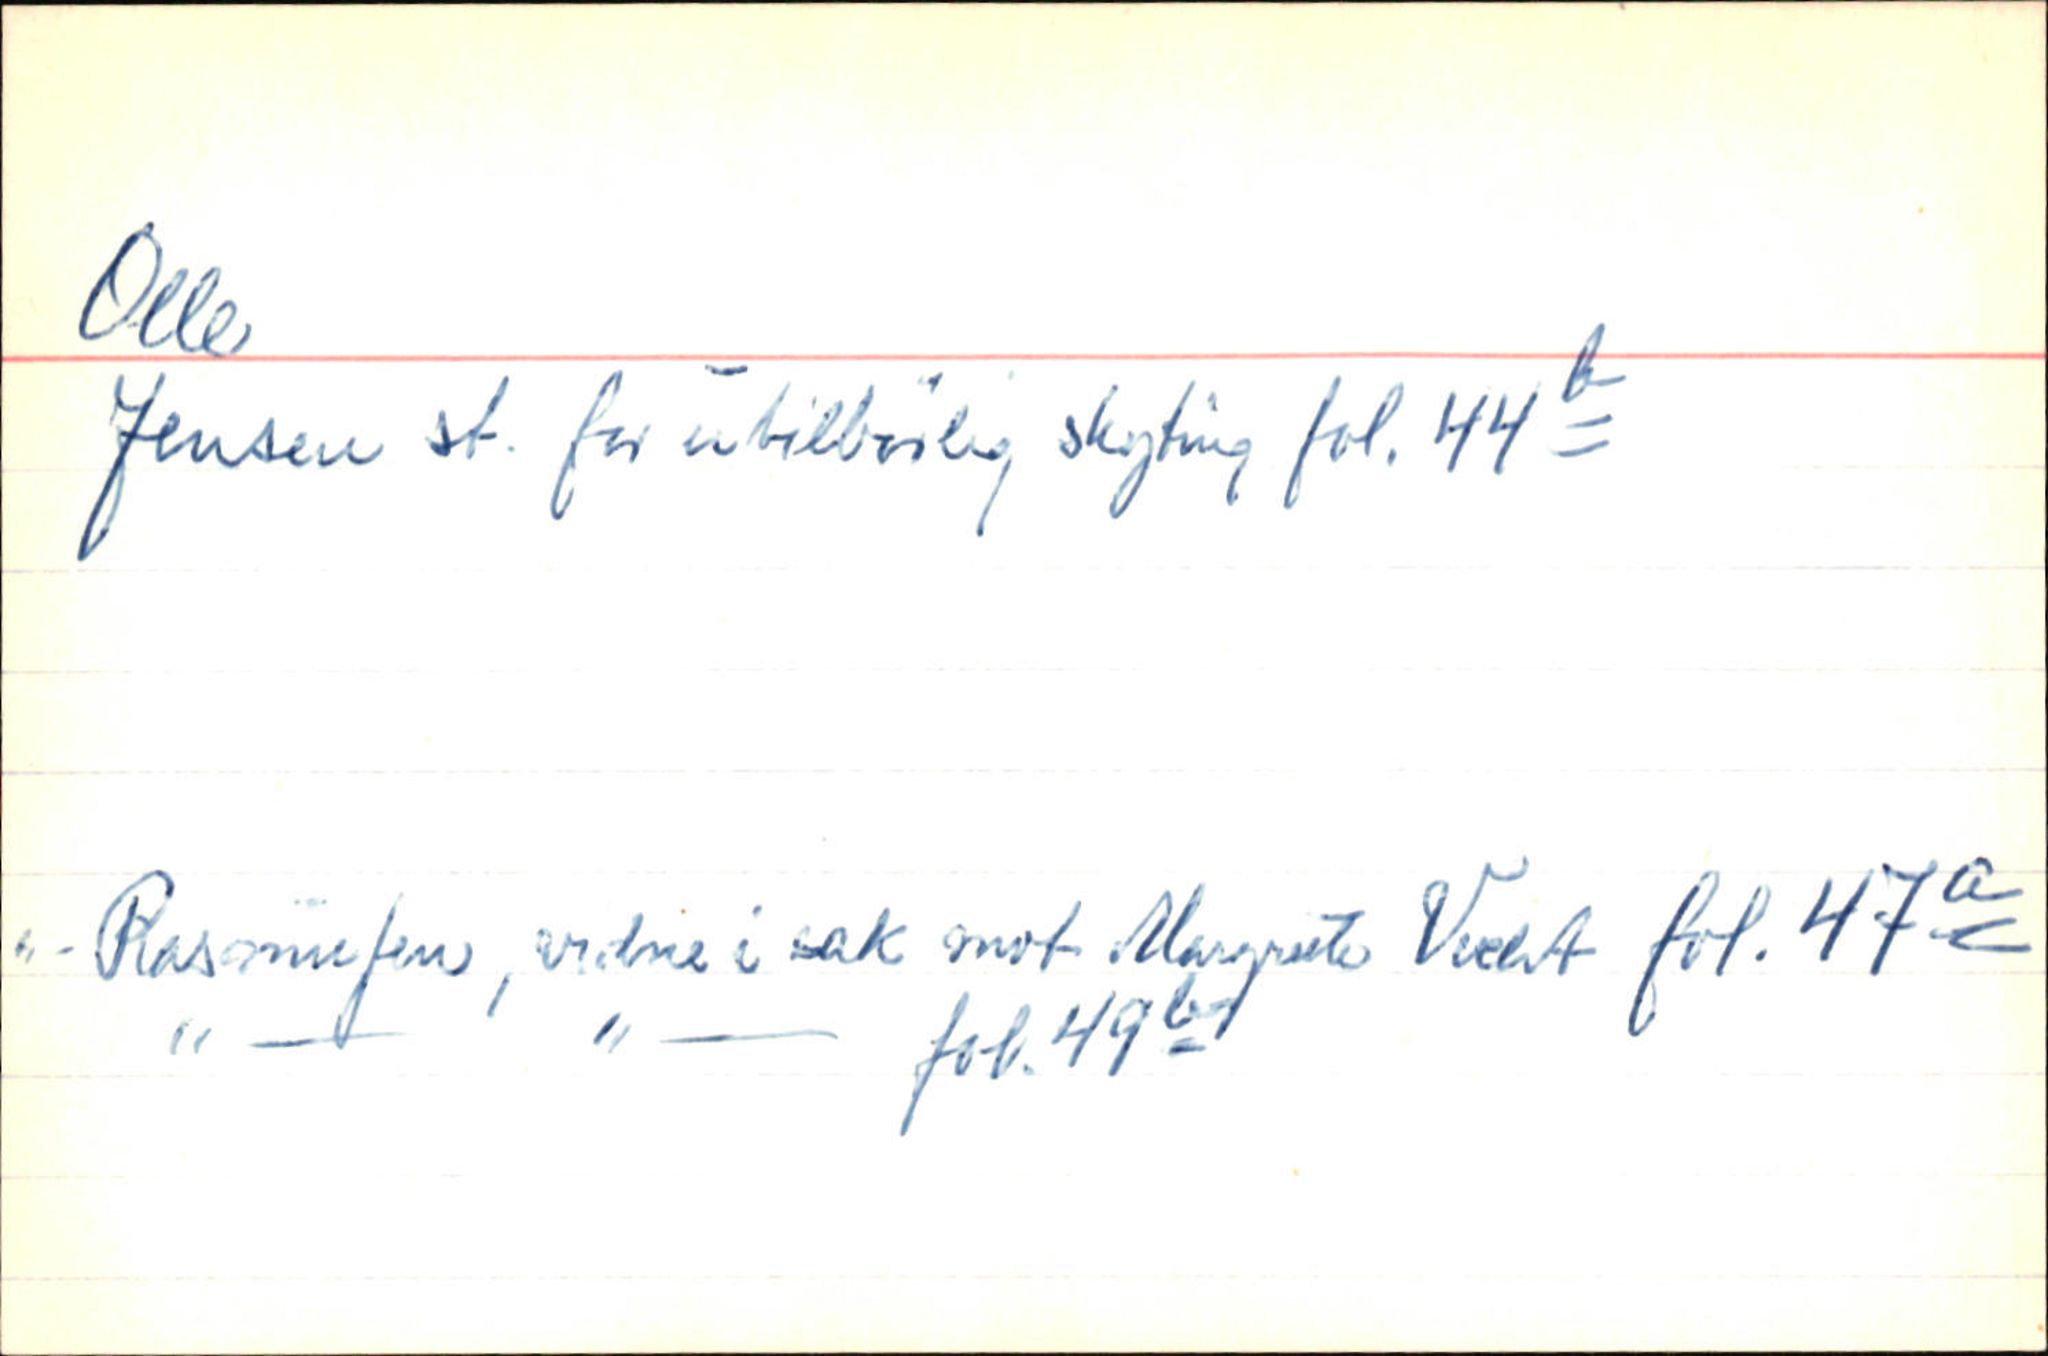 Olle
Jensen st. for utilbørlig skyting fol. 44 b
"- Rasmusen, vidne i sak mot Margrete Vecht fol. 47 a
" — " — fol. 49 b